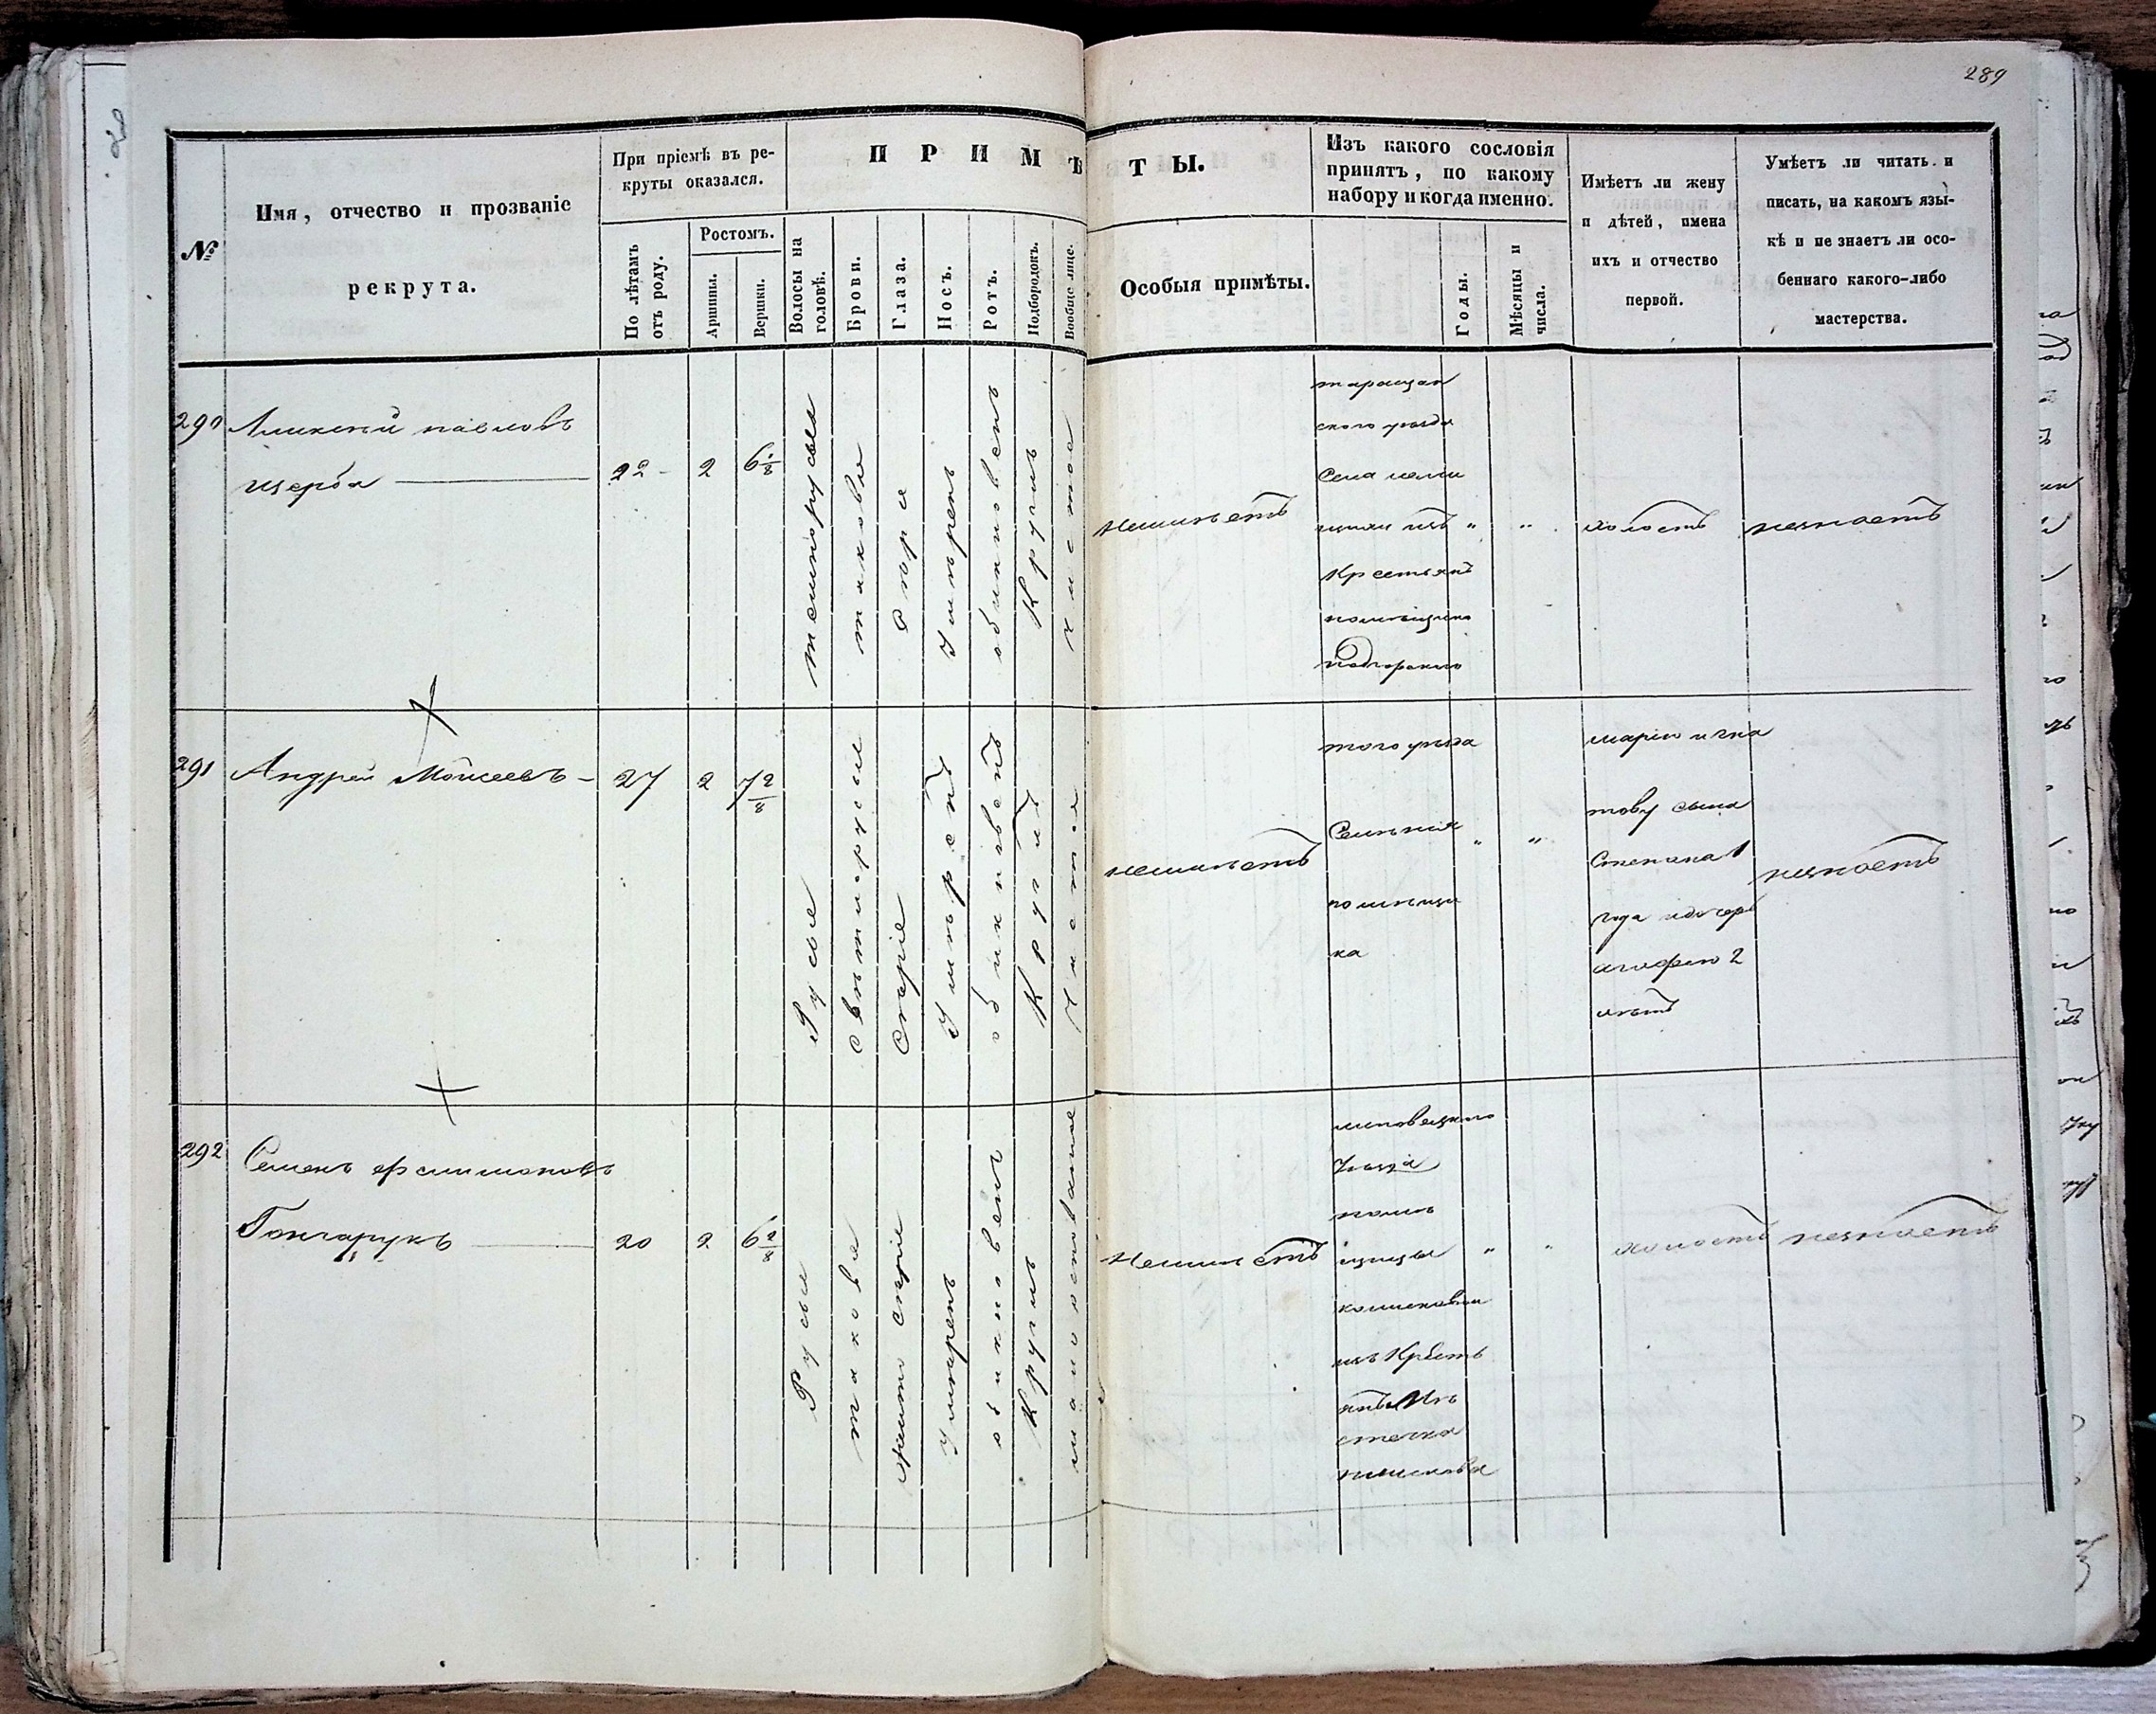 289
№
Имя, отчество и прозваніе
рекрута.
При пріемѣ въ ре-
круты оказался.
По лѣтамъ
отъ роду.
Ростомъ.
Аршины.
Вершки.
ПРИМѢТЫ.
Волосы на
головѣ.
Брови.
Глаза.
Носъ.
Ротъ.
Подбородокъ.
Вообще лице.
Особыя примѣты.
Изъ какого сословія
принятъ, по какому
набору и когда именно.
Годы.
Мѣсяцы и
числа.
Имѣетъ ли жену
и дѣтей, имена
ихъ и отчество
первой.
Умѣетъ ли читать и
писать, на какомъ язы-
кѣ и не знаетъ ли осо-
беннаго какого-либо
мастерства.
290
павловъ
щерба
22
2
6 1/8
темнорусыя
таковы
умѣренъ
обикновенъ
Кругилъ
чистое
неимѣетъ
таращан
ского уезда
Села
изъ
Крестьянъ
помещика
подгорского
" "
холостъ
незнаетъ
291
Андрей Мойсеевъ
27
2
7 2/8
Русые
свѣтлорусые
серые
умѣренъ
Кругилъ
Чистое
неимѣетъ
того уезда
помѣщи
ка
" "
марию игна
тову сына
Степана 1
года и дочерь
агафию 2
летъ
незнаетъ
292
Семенъ
Гончарукъ
20
2
6 2/8
Русые
таковы
серые
умеренъ
обикновенъ
Кругилъ
Неимѣетъ
липовецкого
уезда
помѣ
щицы
изъ Кресть
янъ Мѣ
стечка
" "
холостъ
незнаетъ